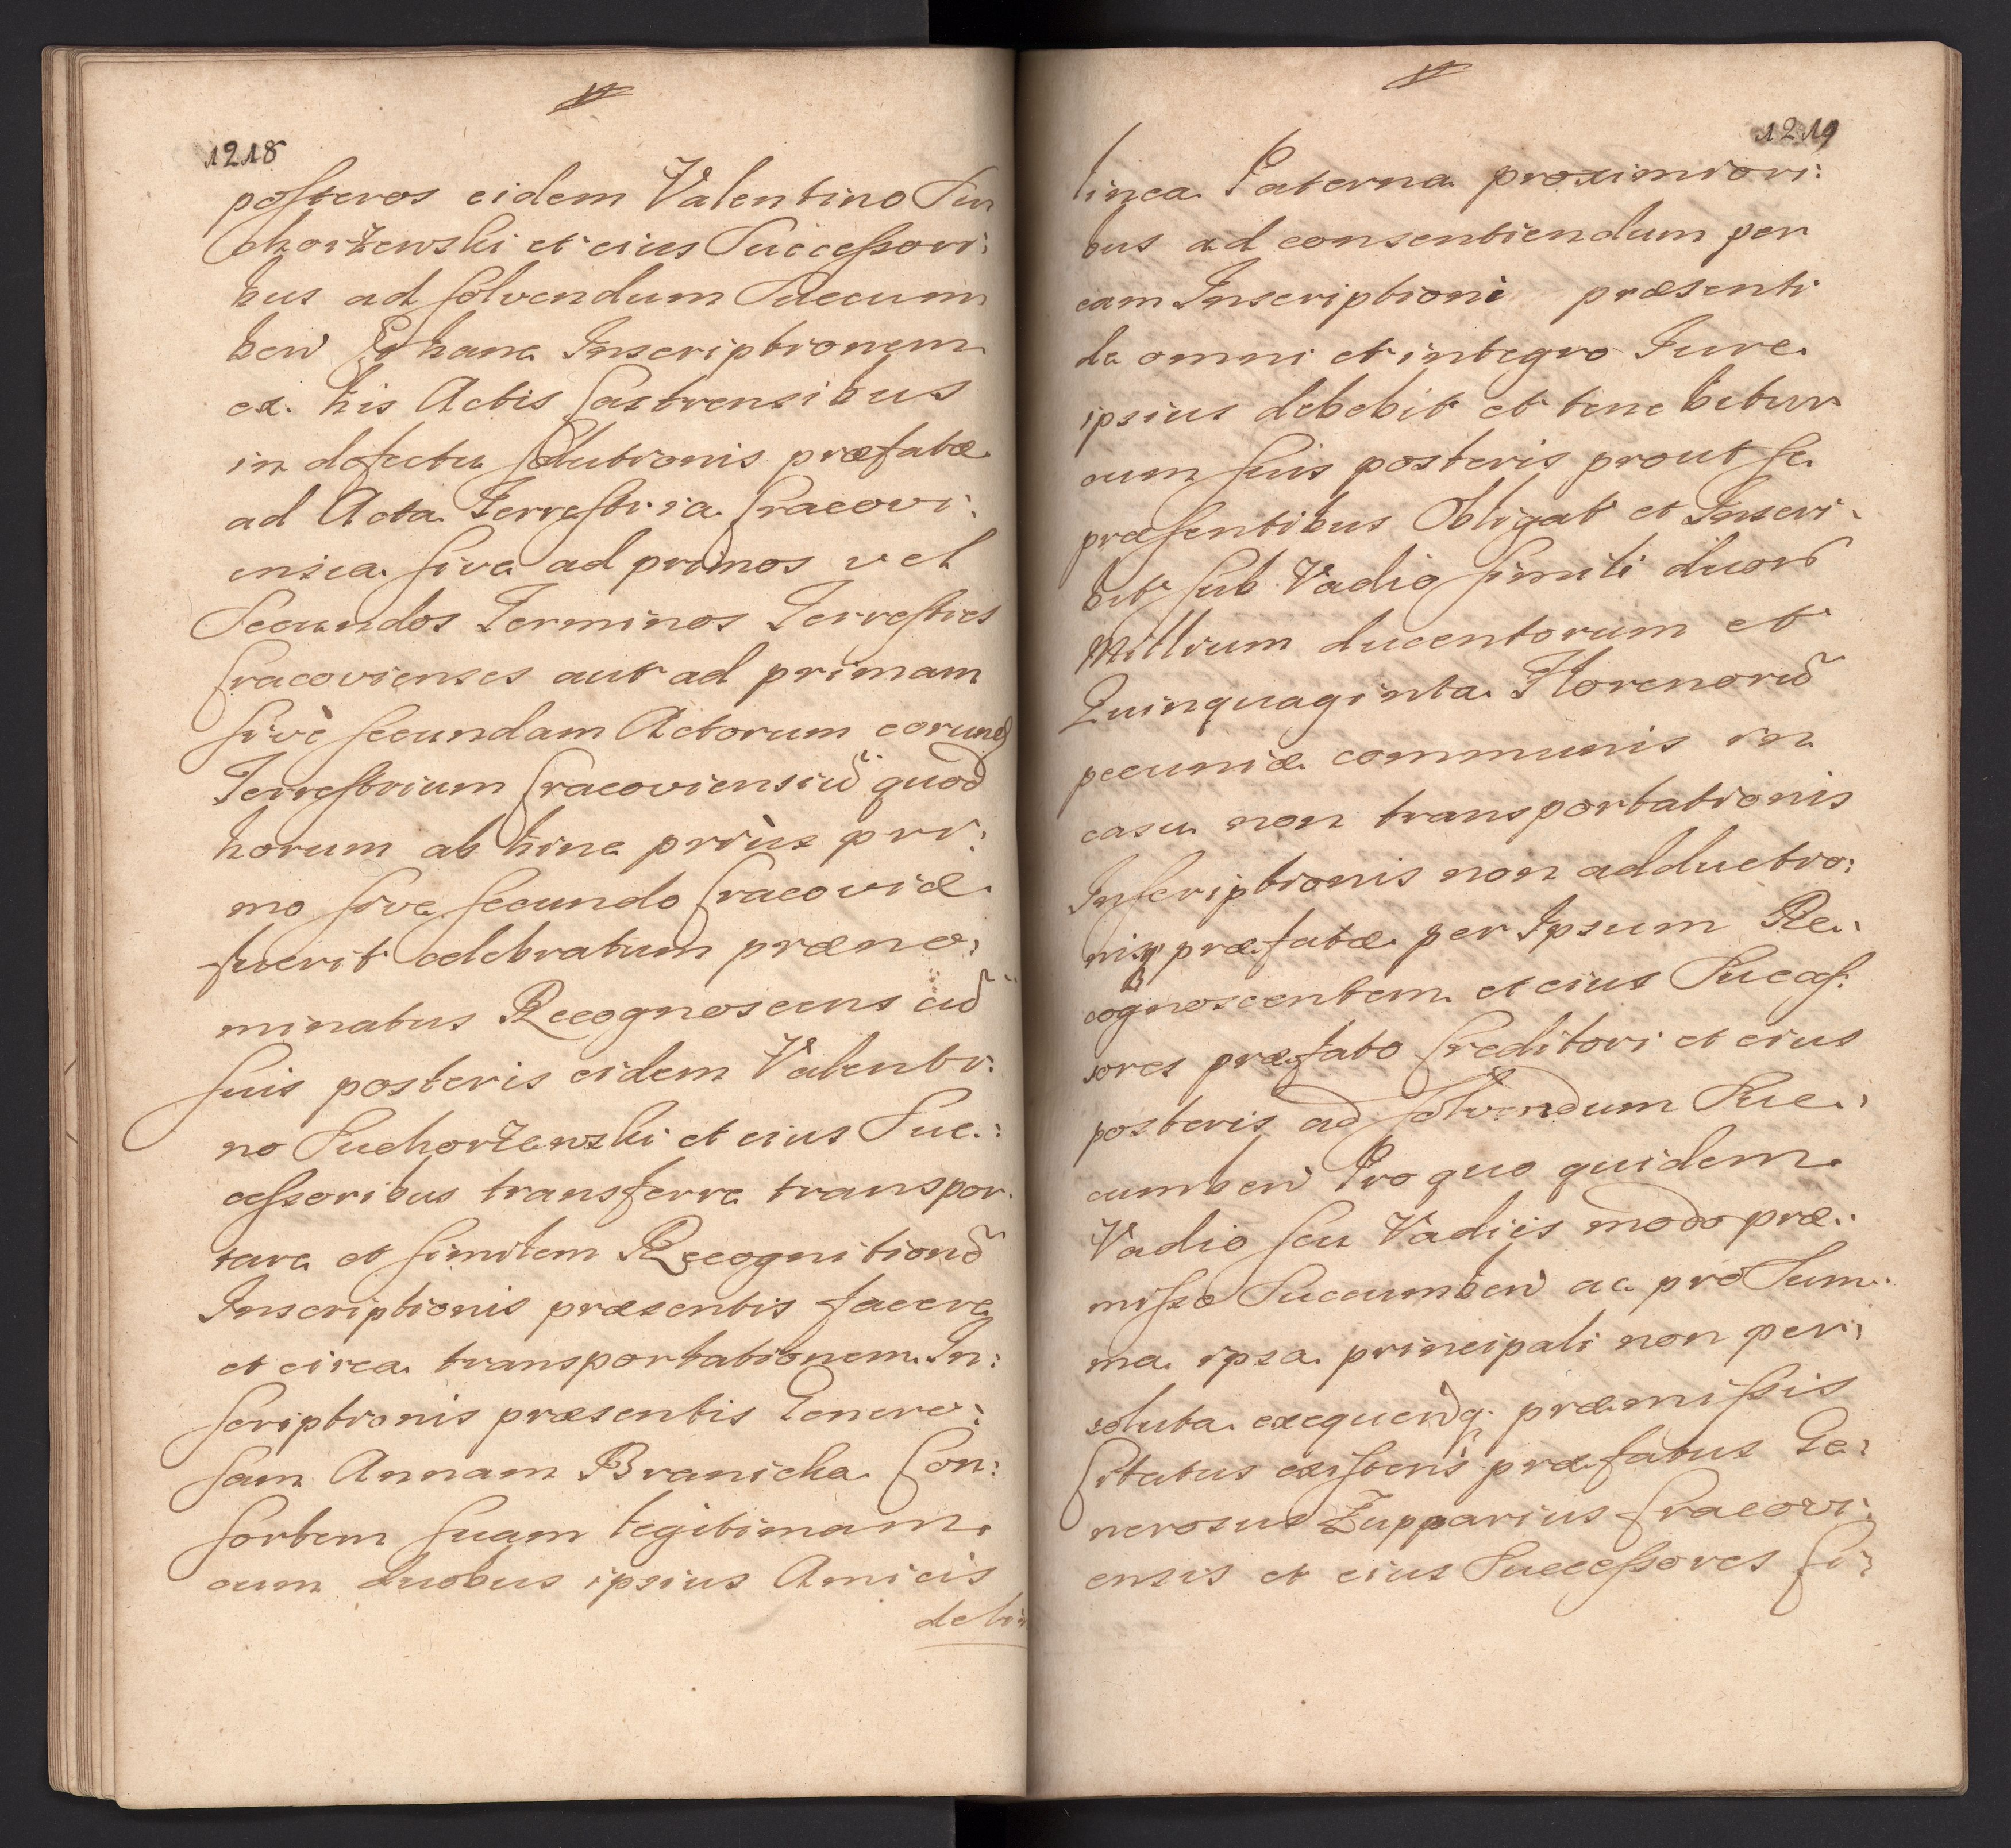 1218
posteros eidem Valentino Su
chorżewski et eius Successori:
bus ad solvendum Succum
ben Et hanc Inscriptionem
ex his Actis Castrensibus
in defectu solutionis præfatæ
ad Acta Terrestria Cracovi:
ensia sive ad primos vel
Secundos Terminos Terrestres
Cracovienses aut ad primam
sivè secundam Actorum eorund
Terrestrium Cracoviensiũ quod
horum ab hinc priùs pri:
mo sive secundo Cracoviæ
fuerit celebratum præno:
minatus Recognoscens cũ
suis posteris eidem Valenti:
no Suchorżewski et eius Suc:
cessoribus transferre transpor:
tare et similem Recognitionẽ
Inscriptionis præsentis facere
et circa transportationem In:
scriptionis præsentis Genero:
sam Annam Branicka Con:
sortem suam legitimam
cum duobus ipsius Amicis
de li:
1219
linea Paterna proximiori:
bus ad consentiendum per
eam Inscriptioni præsenti
de omni et integro Iure
ipsius debebit et tenebitur
cum suis posteris prout se
præsentibus Obligat et Inscri:
bit sub Vadio simili duorũ
Millium ducentorum et
Quinquaginta Florenorũ
pecuniæ communis in
casu non transportationis
Inscriptionis non adductio:
nisq præfatæ per Ipsum Re:
cognoscentem et eius Succes:
sores præfato Creditori et eius
posteris ad solvendum Suc:
cumben Pro quo quidem
Vadio seu Vadiis modo præ:
misso Succumben ac pro Sum:
ma ipsa principali non per:
soluta exequendq præmissis
Citatus existens præfatus Ge:
nerosus Zupparius Cracovi:
ensis et eius Successores Ci: